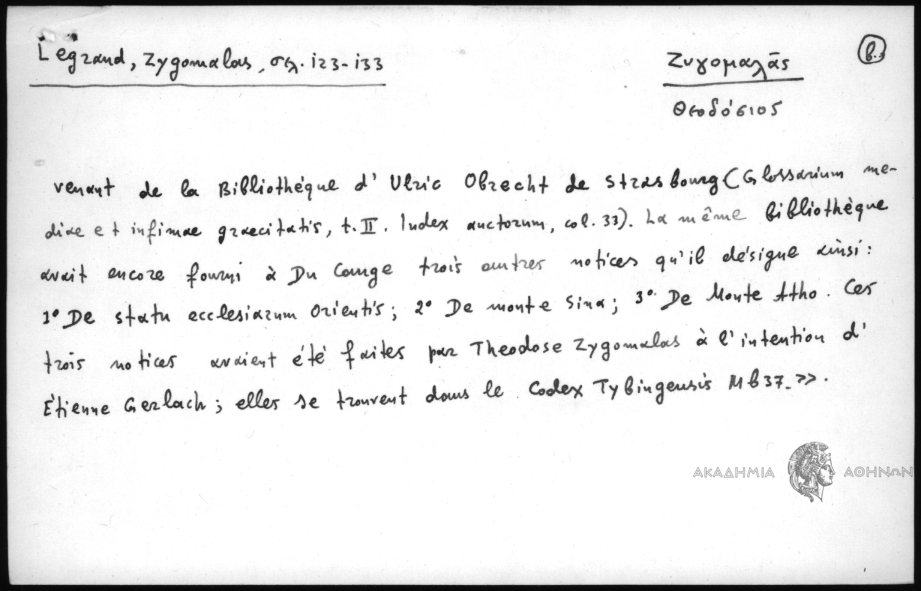 Legrand, Zygomalas, σελ. 123-133
Ζυγομαλᾶς
β.
Θεοδόσιος
venant de la Bibliothèque d' Ulric Obrecht de Strasbourg (Glossarium me-
diae et infimae graecitatis, t. II. Index auctorum, col. 33). La même bibliothèque
avait encore fourni à Du Cange trois autres notices qu'il désigne ainsi:
1° De statu ecclesiarum Orientis; 2° De monte Sina; 3° De Monte Atho. Ces
trois notices avaient été faites par Theodose Zygomalas à l'intention d'
Étienne Gerlach; elles se trouvent dans le Codex Tybingensis Mb37.>>.
ΑΚΑΔΗΜΙΑ ΑΘΗΝΩΝ